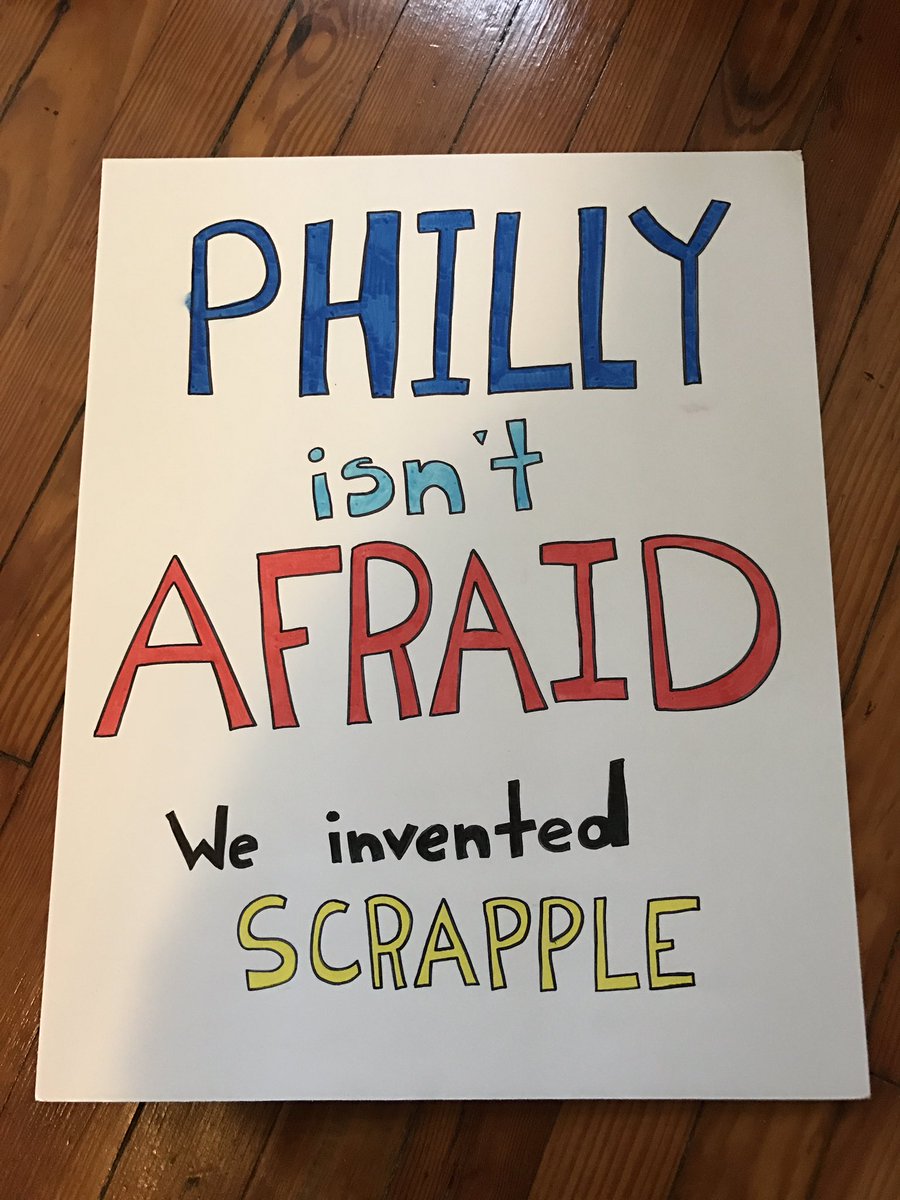 PHILLY
isn't
AFRAID
We invented
SCRAPPLE